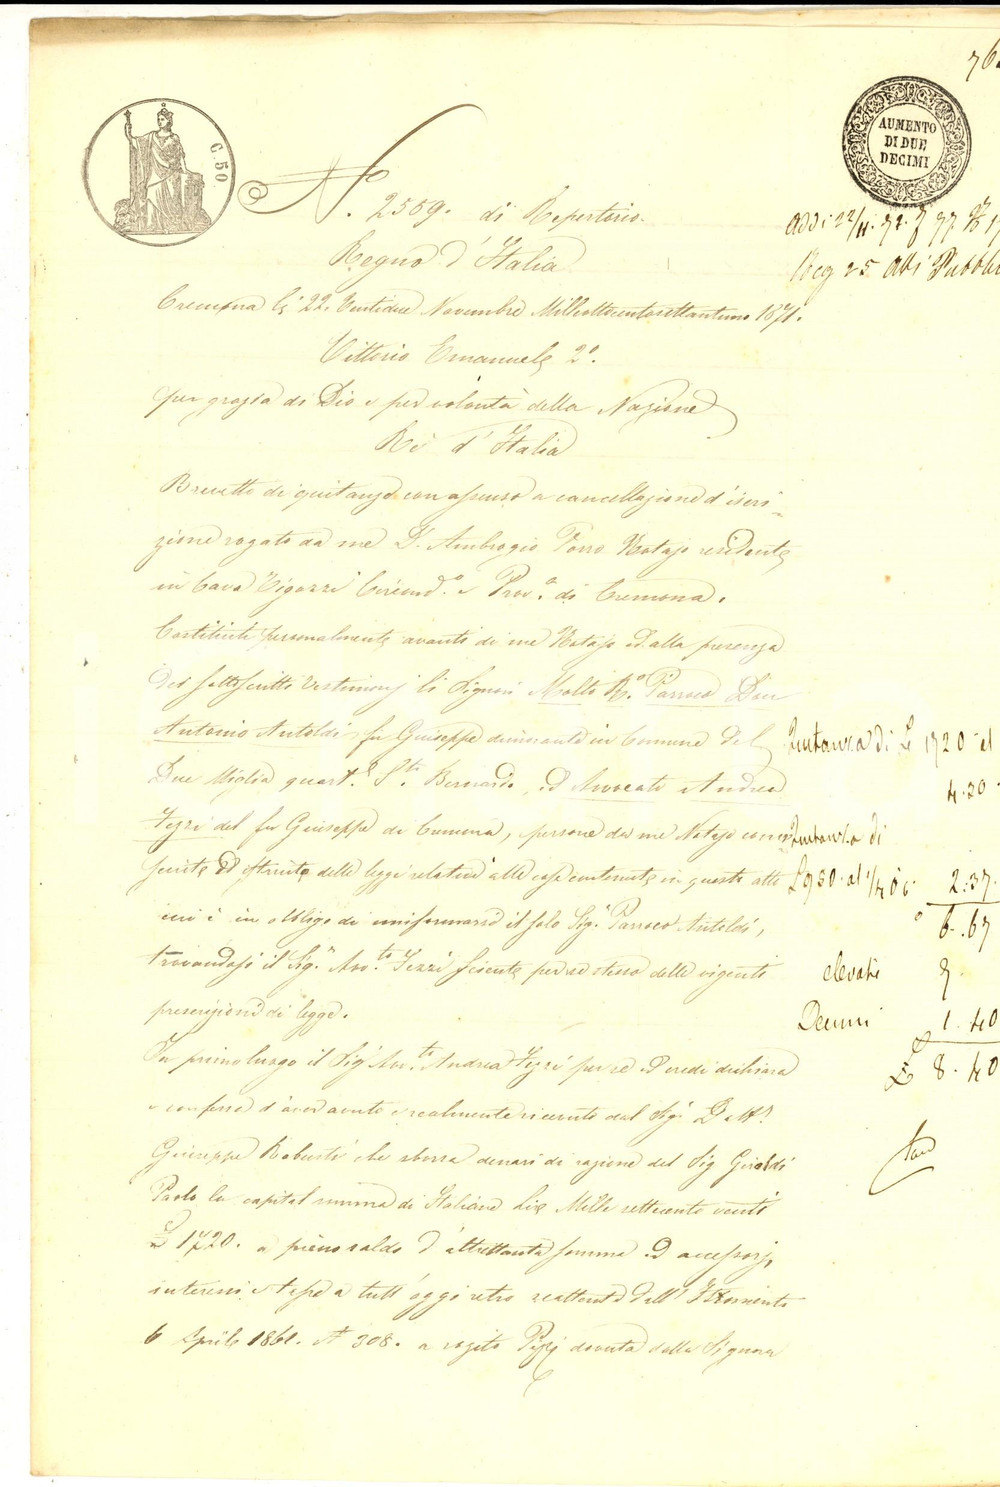 76
C. 50
AUMENTO
DI DUE
DECIMI
N. 2509. di Repertorio.
Addi 22/11. 72.
Reg 25 Atti Pubbli
Regno d'Italia
Cremona li 22. Ventidue Novembre Milleottocentosettantuno 1871.
Vittorio Emanuele 2°.
per grazia di Dio e per volontà della Nazione
Re d'Italia
Brevetto di quitanza con assenso a cancellazione d'iscri-
zione rogato da me D. Ambrogio Porro Notajo residente
in Cava Tigozzi Circond.° e Prov.a di Cremona.
Costituiti personalmente avanti di me Notajo ed alla presenza
dei sottoscritti testimonj li Signori Molto R.° Parroco Don
Antonio Antoldi fu Giuseppe dimorante in Comune del
Due Miglia quart.e S.to Bernardo, ed Avvocato Andrea
Fezzi del fu Giuseppe di Cremona, persone da me Notajo cono-
sciute ed istruite delle leggi relative alle cose contenute in questo atto
cui è in obbligo di uniformarsi il solo Sig.r Parroco Antoldi,
trovandosi il Sig.r Avv.to Fezzi sciente per se stesso delle vigenti
prescrizioni di legge.
In primo luogo il Sig.r Avv.to Andrea Fezzi per se ed eredi dichiara
e confessa d'aver avuto e realmente ricevuto dal Sig.r Dott.r
Giuseppe Robusti che sborsa denari di ragione del Sig Giraldi
Paolo la capital somma di Italiane Lire Mille settecento venti
£ 1720. a pieno saldo d'altrettanta somma ed accessorj,
interessi e tasse a tutt'oggi retro scattente dall'Istromento
6 Aprile 1861. N 308. a rogito Pizzi dovuta dalla Signora
Quitanza di £ 1720 al
4.30
Quitanza di
£ 950. al 1/4 0/0 2:37.
6.67
elevate 7.
Decimi 1.40
£ 8.40